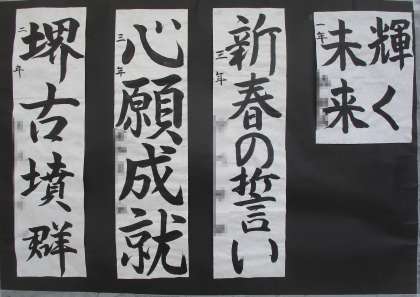 輝く
未来
一年
新春の誓い
三年
心願成就
三年
堺古墳群
二年